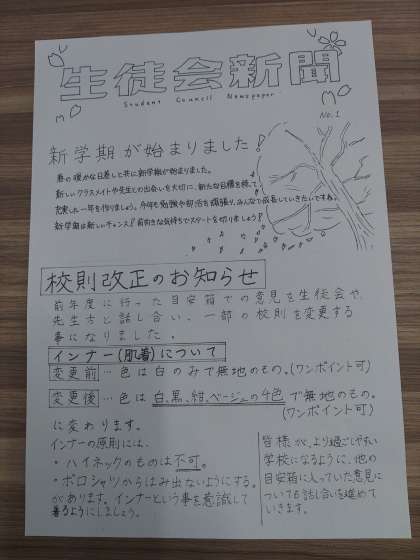 生徒会新聞
Student Council Newspaper
No.1
新学期が始まりました!
春の暖かな日差しと共に新学期が始まりました。
新しいクラスメイトや先生との出会いを大切に、新たな目標を持って
充実した一年を作りましょう。今年も勉強や部活を頑張り、みんなで成長していきたいですね。
新学期は新しいチャンス!前向きな気持ちでスタートを切りましょう!
校則改正のお知らせ
前年度に行った目安箱での意見を生徒会や、
先生方と話し合い、一部の校則を変更する
事になりました。
インナー(肌着)について
変更前…色は白のみで無地のもの。(ワンポイント可)
変更後…色は白、黒、紺、ベージュの4色で無地のもの。
(ワンポイント可)
に変わります。
インナーの原則には、
・ハイネックのものは不可。
・ポロシャツからはみ出ないようにする。
があります。インナーという事を意識して
着るようにしましょう。
皆様が、より過ごしやすい
学校になるように、他の
目安箱に入っていた意見に
ついても話し合いを進めて
いきます。